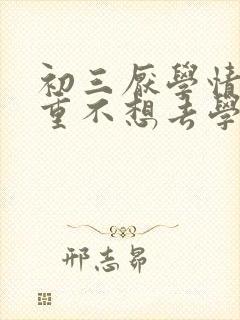 初三厭學情
重不想去學
邢志昂